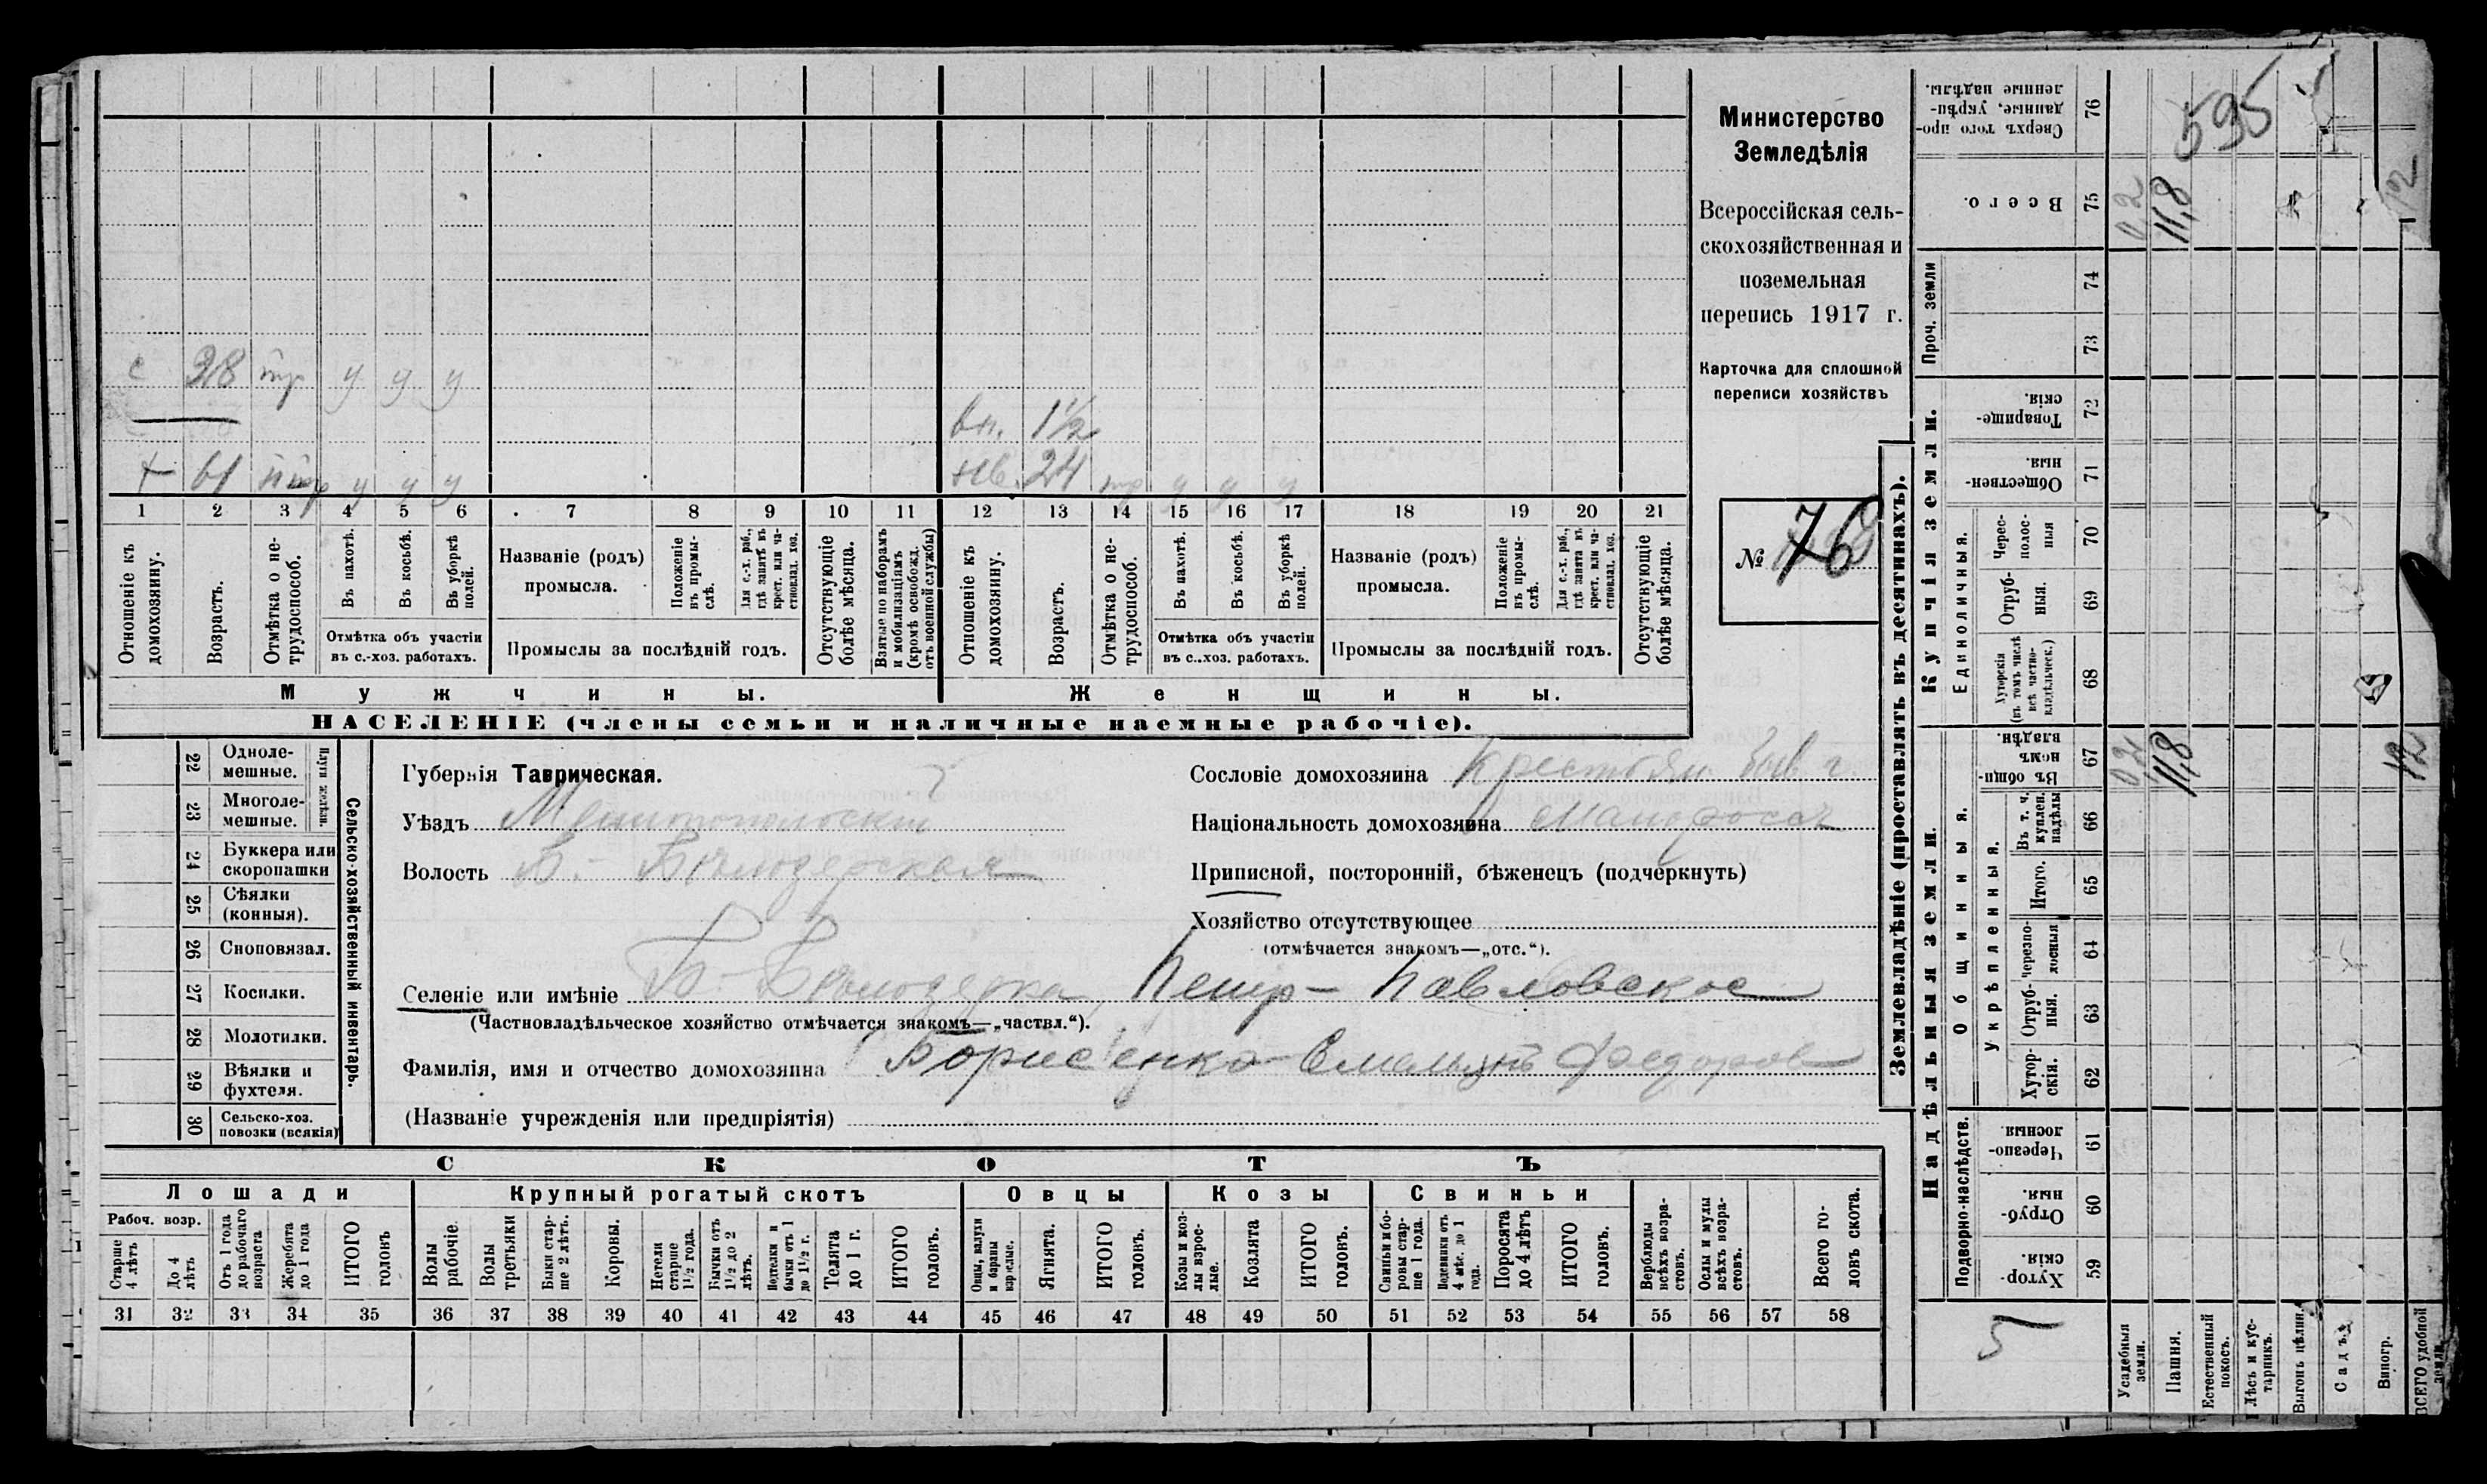 Министерство
Земледѣлія
Всероссійская сель-
скохозяйственная и
поземельная
перепись 1917 г.
Карточка для сплошной
переписи хозяйствъ
№ 76
с 28 тр у у у
вн. 1½
+ 61 нтр у у у
нв. 24 тр у у у
1 2 3 4 5 6 7 8 9 10 11 12 13 14 15 16 17 18 19 20 21
Отношеніе къ домохозяину.
Возрастъ.
Отмѣтка о не-трудоспособ.
Въ пахотѣ.
Въ косьбѣ.
Въ уборкѣ полей.
Отмѣтка объ участіи
въ с.-хоз. работахъ.
Названіе (родъ)
промысла.
Положеніе въ промы-слѣ.
Для с.-х. раб., гдѣ занятъ въ крест. или ча-стновлад. хоз.
Промыслы за послѣдній годъ.
Отсутствующіе болѣе мѣсяца.
Взятые по наборамъ и мобилизаціямъ (кромѣ освобожд. отъ военной службы)
Отношеніе къ домохозяину.
Возрастъ.
Отмѣтка о не-трудоспособ.
Въ пахотѣ.
Въ косьбѣ.
Въ уборкѣ полей.
Отмѣтка объ участіи
въ с..хоз. работахъ.
Названіе (родъ)
промысла.
Положеніе въ промы-слѣ.
Для с.-х. раб., гдѣ занята въ крест. или ча-стновлад. хоз.
Промыслы за послѣдній годъ.
Отсутствующіе болѣе мѣсяца.
Мужчины.
Женщины.
НАСЕЛЕНІЕ (члены семьи и наличные наемные рабочіе).
Сельско-хозяйственный инвентарь.
Плуги желѣзн.
22 Одноле-мешные.
23 Многоле-мешные.
24 Буккера или скоропашки
25 Сѣялки (конныя).
26 Сноповязал.
27 Косилки.
28 Молотилки.
29 Вѣялки и фухтеля.
30 Сельско-хоз. повозки (всякія)
Губернія Таврическая.
Уѣздъ Мелитопольскій
Волость Б.-Бѣлозерская
Селеніе или имѣніе Б-Бѣлозерка, Петр-Павловское
(Частновладѣльческое хозяйство отмѣчается знакомъ—„частвл.“).
Фамилія, имя и отчество домохозяина Борисенко Емельянъ Федоров
(Названіе учрежденія или предпріятія)
Сословіе домохозяина Крестьян. быв. г.
Національность домохозяина Малоросс
Приписной, посторонній, бѣженецъ (подчеркнуть)
Хозяйство отсутствующее
(отмѣчается знакомъ—„отс.“).
СКОТЪ
Лошади
Крупный рогатый скотъ
Овцы
Козы
Свиньи
Рабоч. возр.
Старше 4 лѣтъ
До 4 лѣтъ
Отъ 1 года до рабочаго возраста
Жеребята до 1 года
ИТОГО головъ
Волы рабочіе.
Волы третьяки
Быки стар-ше 2 лѣтъ.
Коровы.
Нетели старше 1½ года.
Бычки отъ 1½ до 2 лѣтъ.
Подтелки и бычки отъ 1 до 1½ г.
Телята до 1 г.
ИТОГО головъ.
Овцы, валухи и бараны взрослые.
Ягнята.
ИТОГО головъ.
Козы и коз-лы взрос-лые.
Козлята
ИТОГО головъ.
Свиньи и бо-ровы стар-ше 1 года.
Подсвинки отъ 4 мѣс. до 1 года.
Поросята до 4 лѣтъ
ИТОГО головъ.
Верблюды всѣхъ возра-стовъ.
Ослы и мулы всѣхъ возра-стовъ.
Всего го-ловъ скота.
31 32 33 34 35 36 37 38 39 40 41 42 43 44 45 46 47 48 49 50 51 52 53 54 55 56 57 58
Землевладѣніе (проставлять въ десятинахъ).
Надѣльныя земли.
Купчія земли.
Проч. земли
Подворно-наслѣдств.
Общинныя.
Укрѣпленныя.
Единоличныя.
Хутор-скія. 59
Отруб-ныя. 60
Черезпо-лосныя. 61
Хутор-скія. 62
Отруб-ныя. 63
Черезпо-лосныя 64
Итого. 65
Въ т. ч. куплен. надѣлы 66
Въ общин-номъ владѣн. 67
0,2
11,8
12
Хуторскія (въ томъ числѣ всѣ частно-владѣльческ.) 68
Отруб-ныя. 69
Черес-полос-ныя 70
Обществен-ныя. 71
Товарище-скія. 72
73
74
Всего. 75
0,2
11,8
12
Сверхъ того про-данные, укрѣп-ленные надѣлы. 76
595
5
Усадебныя земли.
Пашня.
Естественный покосъ.
Лѣсъ и кус-тарникъ.
Выгонъ цѣлин.
Садъ.
Виногр.
ВСЕГО удобной земли